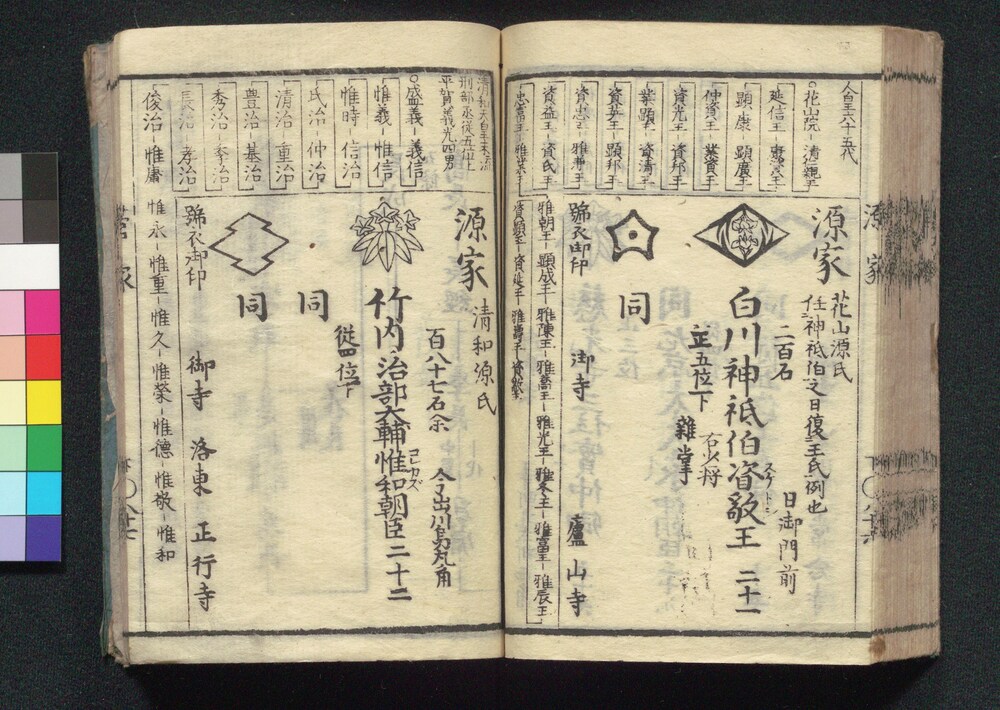 人皇六十五代
花山院 清仁親王
延信王
顕康 顕廣王
仲資王 業資王
資光王 資邦王
業顕王 資清王
資英王 顕邦王
資忠王 雅兼王
資益王 資氏王
忠富王 雅業王
源家
花山源氏
任神祇伯之日復王氏例也
二百石
日御門前
白川神祇伯資敬王 二十一
スケトシ
正五位下
右少将
雜掌
同
號衣御印
御寺 廬山寺
雅朝王 顕成王 雅陳王 雅喬王 雅光王 雅冬王 雅富王 雅辰王
資顕王 資延王 雅壽王 資敬王
源家
八十六
清和天皇末流
刑部丞從五位上
平賀義光四男
盛義 義信
惟義 惟信
惟時 信治
氏治 仲治
清治 重治
豊治 基治
秀治 季治
長治 孝治
俊治 惟庸
源家
清和源氏
百八十七石余
今出川烏丸角
竹内治部大輔惟和朝臣 二十二
コレカズ
從四位下
同
同
號衣御印
御寺 洛東 正行寺
惟永 惟重 惟久 惟榮 惟德 惟敬 惟和
八十七